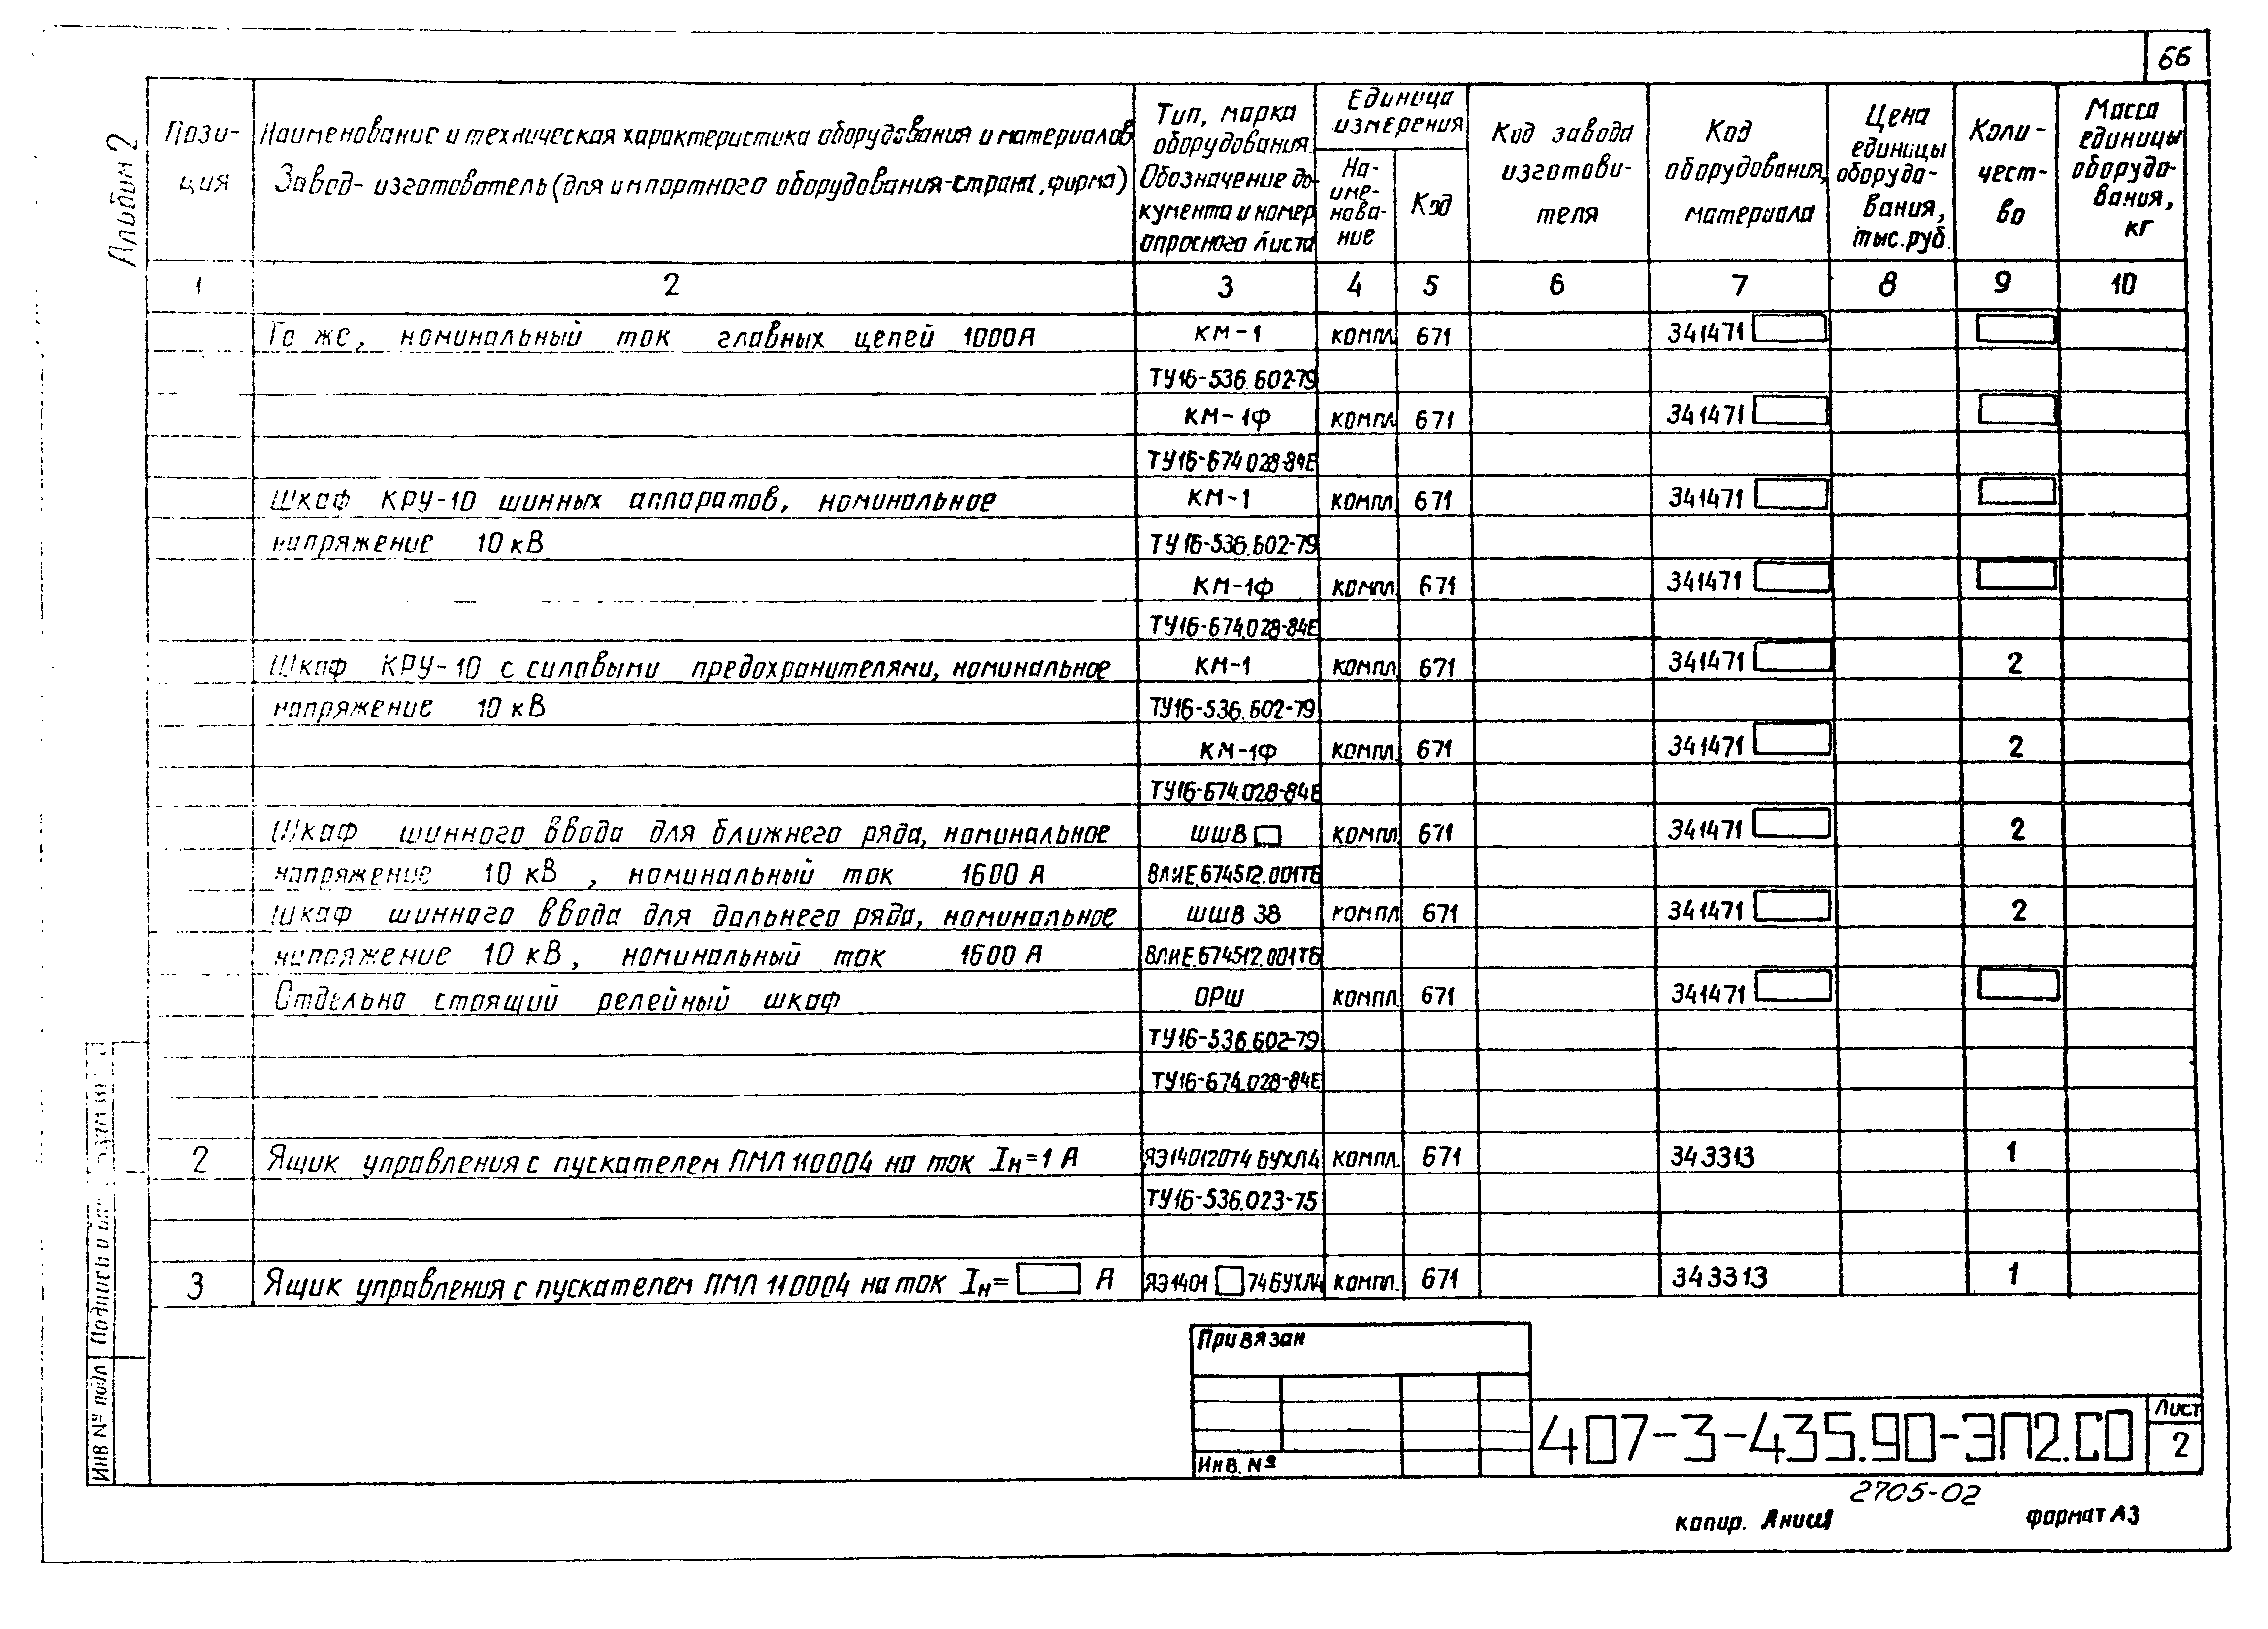 66
Альбом 2
Пози-
ция
Наименование и техническая характеристика оборудования и материалов
Завод-изготовитель (для импортного оборудования-страна, фирма)
Тип, марка
оборудования.
Обозначение до-
кумента и номер
опросного листа
Единица
измерения
На-
име-
нова-
ние
Код
Код завода
изготови-
теля
Код
оборудования,
материала
Цена
единицы
оборудо-
вания,
тыс.руб.
Коли-
чест-
во
Масса
единицы
оборудо-
вания,
кг
1 2 3 4 5 6 7 8 9 10
То же, номинальный ток главных цепей 1000А КМ-1 компл. 671 341471
ТУ16-536.602-79
КМ-1Ф компл. 671 341471
ТУ16-674.028-84Е
Шкаф КРУ-10 шинных аппаратов, номинальное КМ-1 компл. 671 341471
напряжение 10 кВ ТУ16-536.602-79
КМ-1Ф компл. 671 341471
ТУ16-674.028-84Е
Шкаф КРУ-10 с силовыми предохранителями, номинальное КМ-1 компл. 671 341471 2
напряжение 10 кВ ТУ16-536.602-79
КМ-1Ф компл. 671 341471 2
ТУ16-674.028-84Е
Шкаф шинного ввода для ближнего ряда, номинальное ШШВ компл. 671 341471 2
напряжение 10 кВ, номинальный ток 1600 А ВЛИЕ.674512.001ТБ
Шкаф шинного ввода для дальнего ряда, номинальное ШШВ 38 компл 671 341471 2
напряжение 10 кВ, номинальный ток 1600 А ВЛИЕ.674512.001ТБ
Отдельно стоящий релейный шкаф ОРШ компл. 671 341471
ТУ16-536.602-79
ТУ16-674.028-84Е
2 Ящик управления с пускателем ПМЛ 110004 на ток Iн=1 А ЯЭ14012074 БУХЛ4 компл. 671 343313 1
ТУ16-536.023-75
3 Ящик управления с пускателем ПМЛ 110004 на ток Iн= А ЯЭ1401 74БУХЛ4 компл. 671 343313 1
Привязан
Инв. №
407-3-435.90-ЭП2.СО
Лист
2
2705-02
копир. формат А3
Инв № подл
Подпись и